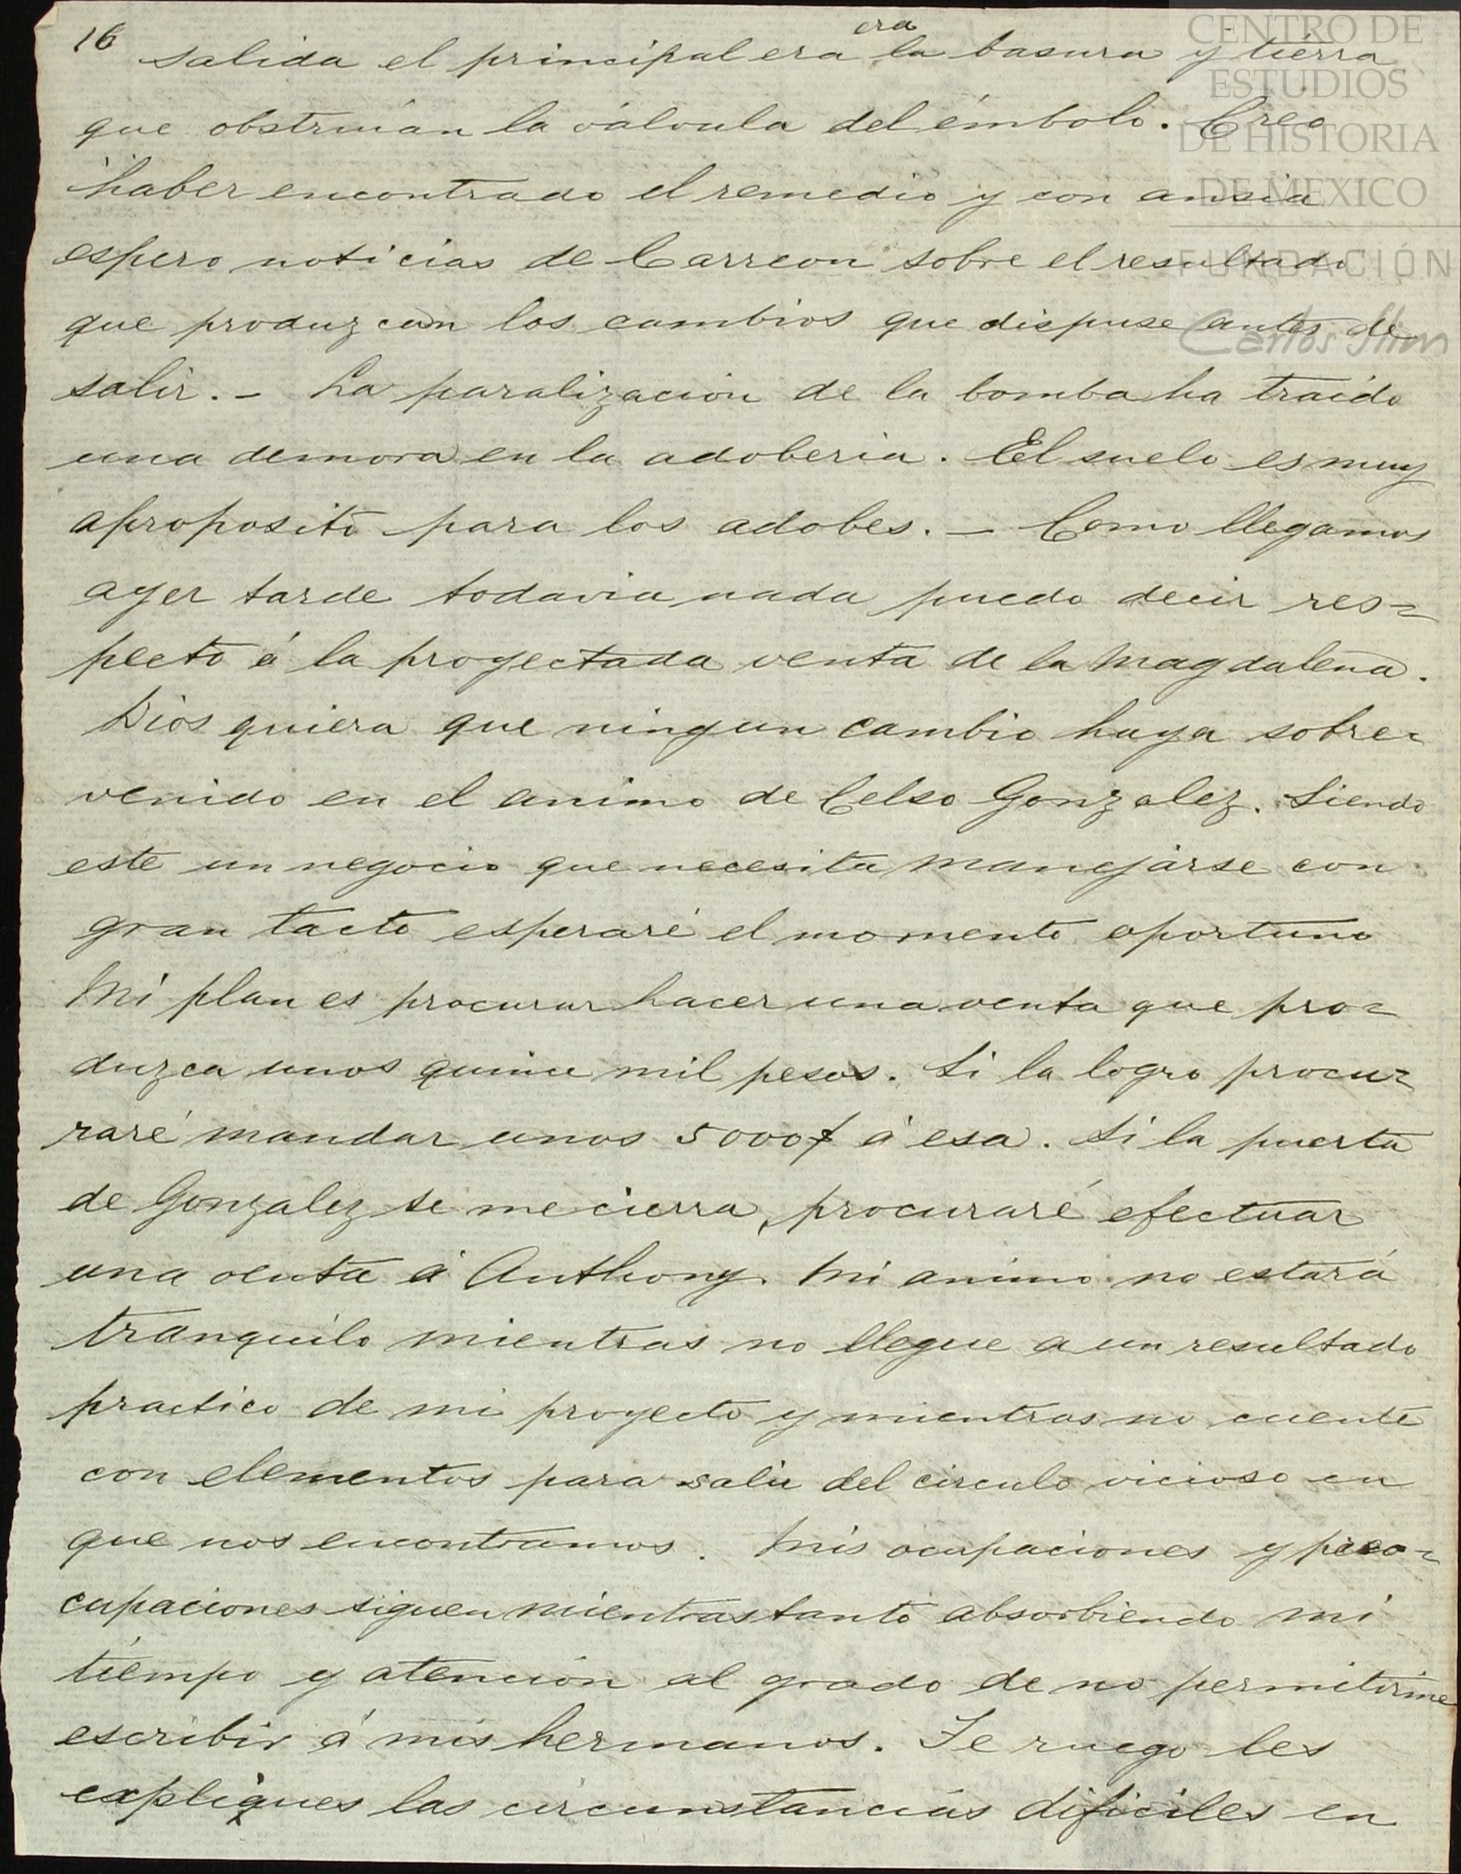 CENTRO DE
ESTUDIOS
DE HISTORIA
DE MEXICO
FUNDACIÓN
Carlos Slim
16
era
salida el principal era la basura y tierra
que obstruían la válvula del émbolo. Creo
haber encontrado el remedio y con ansia
espero noticias de Carreon sobre el resultado
que produzcan los cambios que dispuse antes de
salir. - La paralización de la bomba ha traído
una demora en la adoberia. El suelo es muy
aproposito para los adobes. - Como llegamos
ayer tarde todavia nada puedo decir res=
pecto á la proyectada venta de la Magdalena.
Dios quiera que ningun cambio haya sobre=
venido en el animo de Celso Gonzalez. Siendo
este un negocio que necesita manejarse con
gran tacto esperaré el momento oportuno
Mi plan es procurar hacer una venta que pro=
duzca unos quince mil pesos. Si la logro procu=
raré mandar unos 5000$ á esa. Si la puerta
de Gonzalez se me cierra, procuraré efectuar
una venta á Anthony. Mi animo no estará
tranquilo mientras no llegue a un resultado
practico de mi proyecto y mientras no cuente
con elementos para salir del circulo vicioso en
que nos encontramos. Mis ocupaciones y preo=
cupaciones siguen mientras tanto absorbiendo mi
tiempo y atención al grado de no permitirme
escribir á mis hermanos. Te ruego les
expliques las circunstancias dificiles en